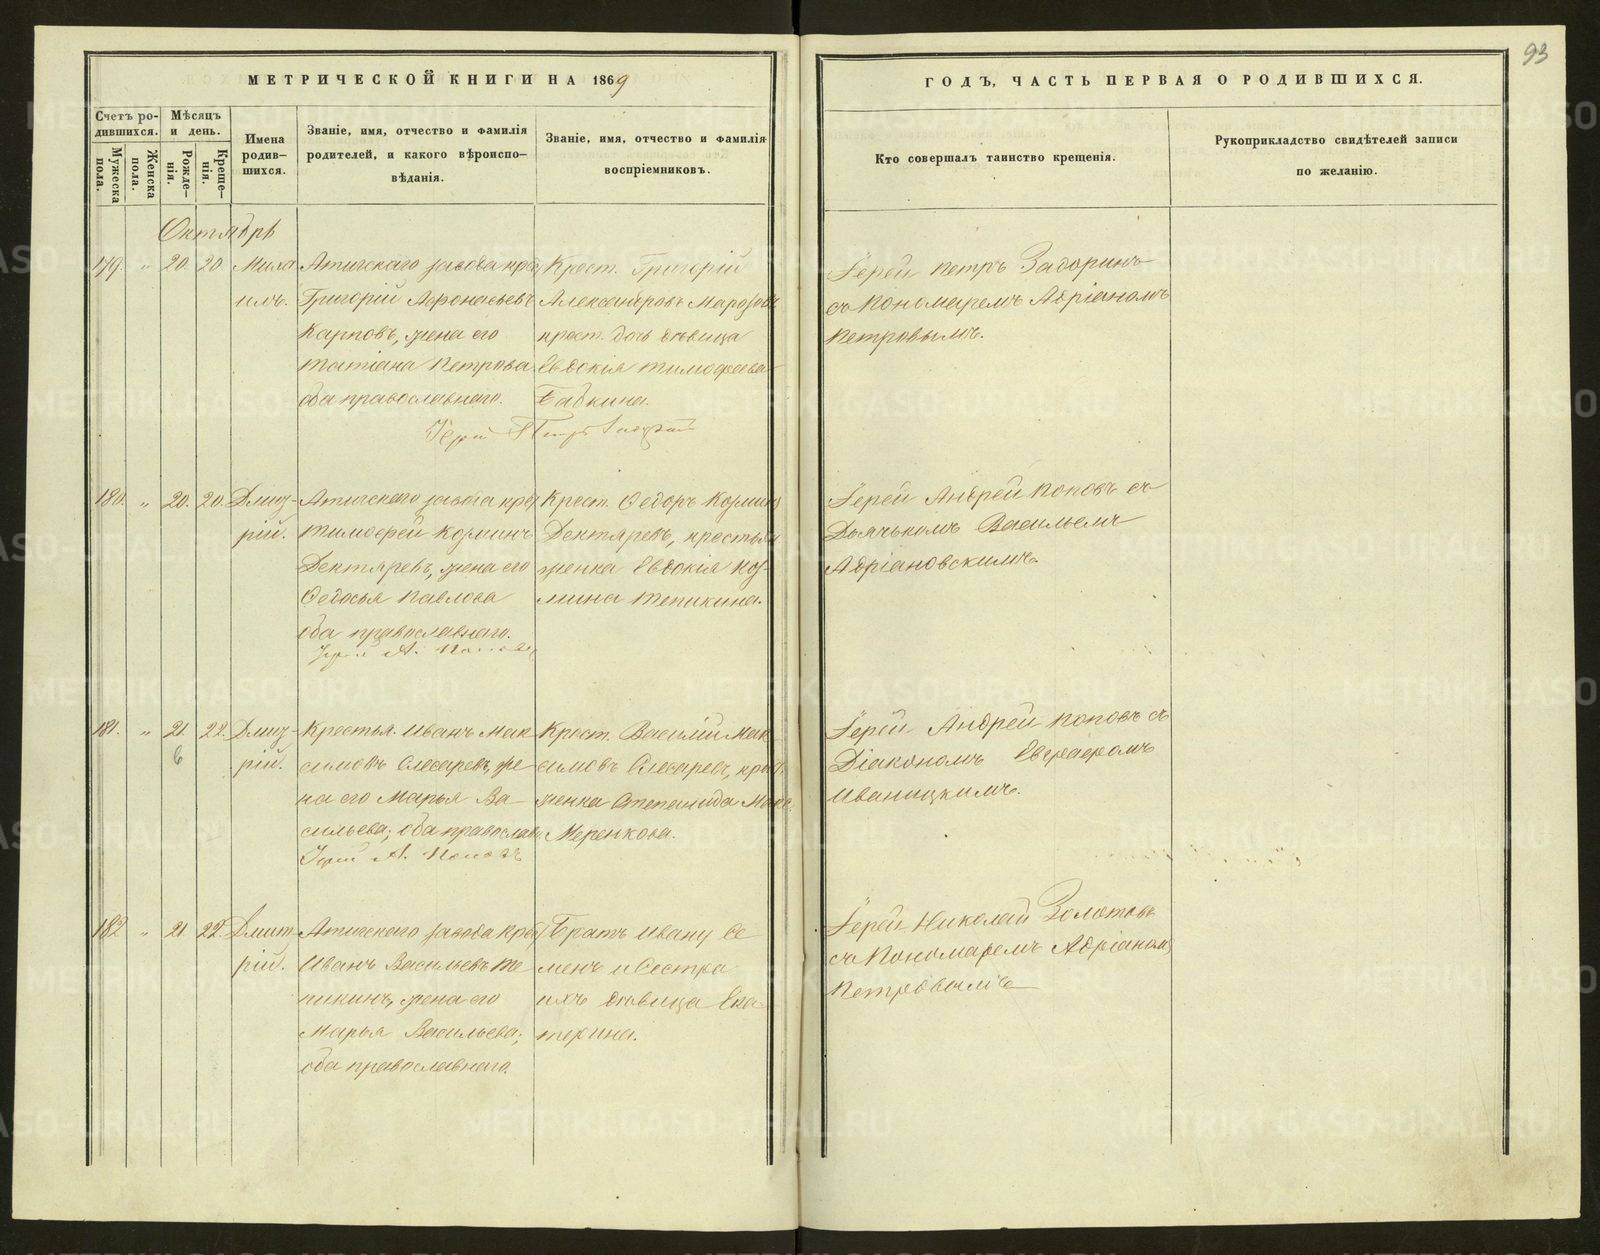 93
МЕТРИЧЕСКОЙ КНИГИ НА 1869
ГОДЪ, ЧАСТЬ ПЕРВАЯ О РОДИВШИХСЯ.
Счетъ ро-
дившихся.
Мужеска
пола.
Женска
пола.
Мѣсяцъ
и день.
Рожде-
нія.
Креще-
нія.
Имена
родив-
шихся.
Званіе, имя, отчество и фамилія
родителей, и какого вѣроиспо-
вѣданія.
Званіе, имя, отчество и фамилія
воспріемниковъ.
Кто совершалъ таинство крещенія.
Рукоприкладство свидѣтелей записи
по желанію.
Октябрь
179. " 20. 20.
Миха
илъ.
Атигскаго завода кре
Григорій Афонасьевъ
Карповъ, жена его
Татіана Петрова
оба православнаго.
Крест. Григорій
Александровъ Морозовъ
крест. дочь дѣвица
Евдокія Тимофеева
Бабкина.
Іерей Петръ
Іерей Петръ Задоринъ
съ Пономаремъ Адріаномъ
Петровымъ.
180. " 20. 20.
Дмит-
рій.
Атигскаго завода кре
Тимофей Козминъ
Дектяревъ, жена его
Ѳедосья Павлова
оба православнаго.
Іерей А. Поповъ
Крест. Ѳедоръ Козминъ
Дектяревъ, крестьян
женка Евдокія Коз-
мина Тепикина.
Іерей Андрей Поповъ съ
Дьячькомъ Васильемъ
Адріановскимъ.
181. " 21. 22.
6
Дмит-
рій.
Крестья. Иванъ Мак
симовъ Слесаревъ, же
на его Марья Ва-
сильева; оба православн
Іерей А. Поповъ
Крест. Василій Мак
симовъ Слесаревъ, крест.
женка Степанида Макс
Меренкова.
Іерей Андрей Поповъ съ
Діакономъ
Иваницкимъ.
182 " 21. 22.
Дмит-
рій.
Атигскаго завода кре
Иванъ Васильевъ Те
пикинъ, жена его
Марья Васильева;
оба православнаго.
Братъ Ивану Се
менъ и Сестра
ихъ дѣвица Ека-
терина.
Іерей Николай Золотовъ
съ Пономаремъ Адріаномъ
Петровымъ
METRIKI.GASO-URAL.RU